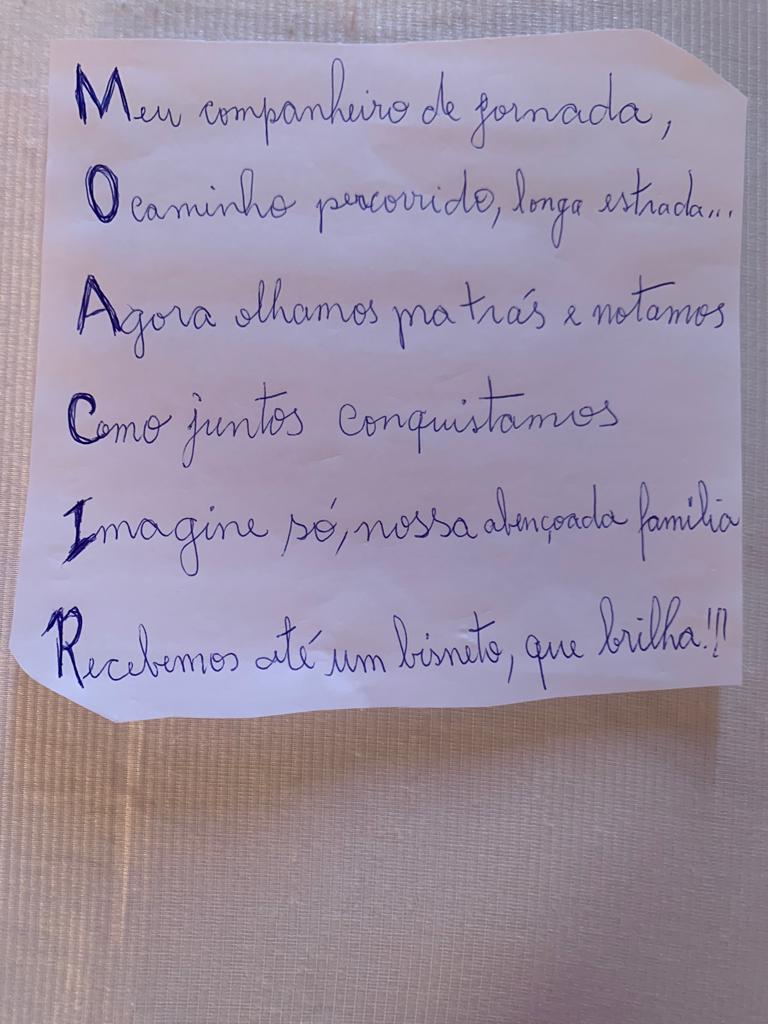 Meu companheiro de jornada,
O caminho percorrido, longa estrada...
Agora olhamos pra trás e notamos
Como juntos conquistamos
Imagine só, nossa abençoada família
Recebemos até um bisneto, que brilha!!!